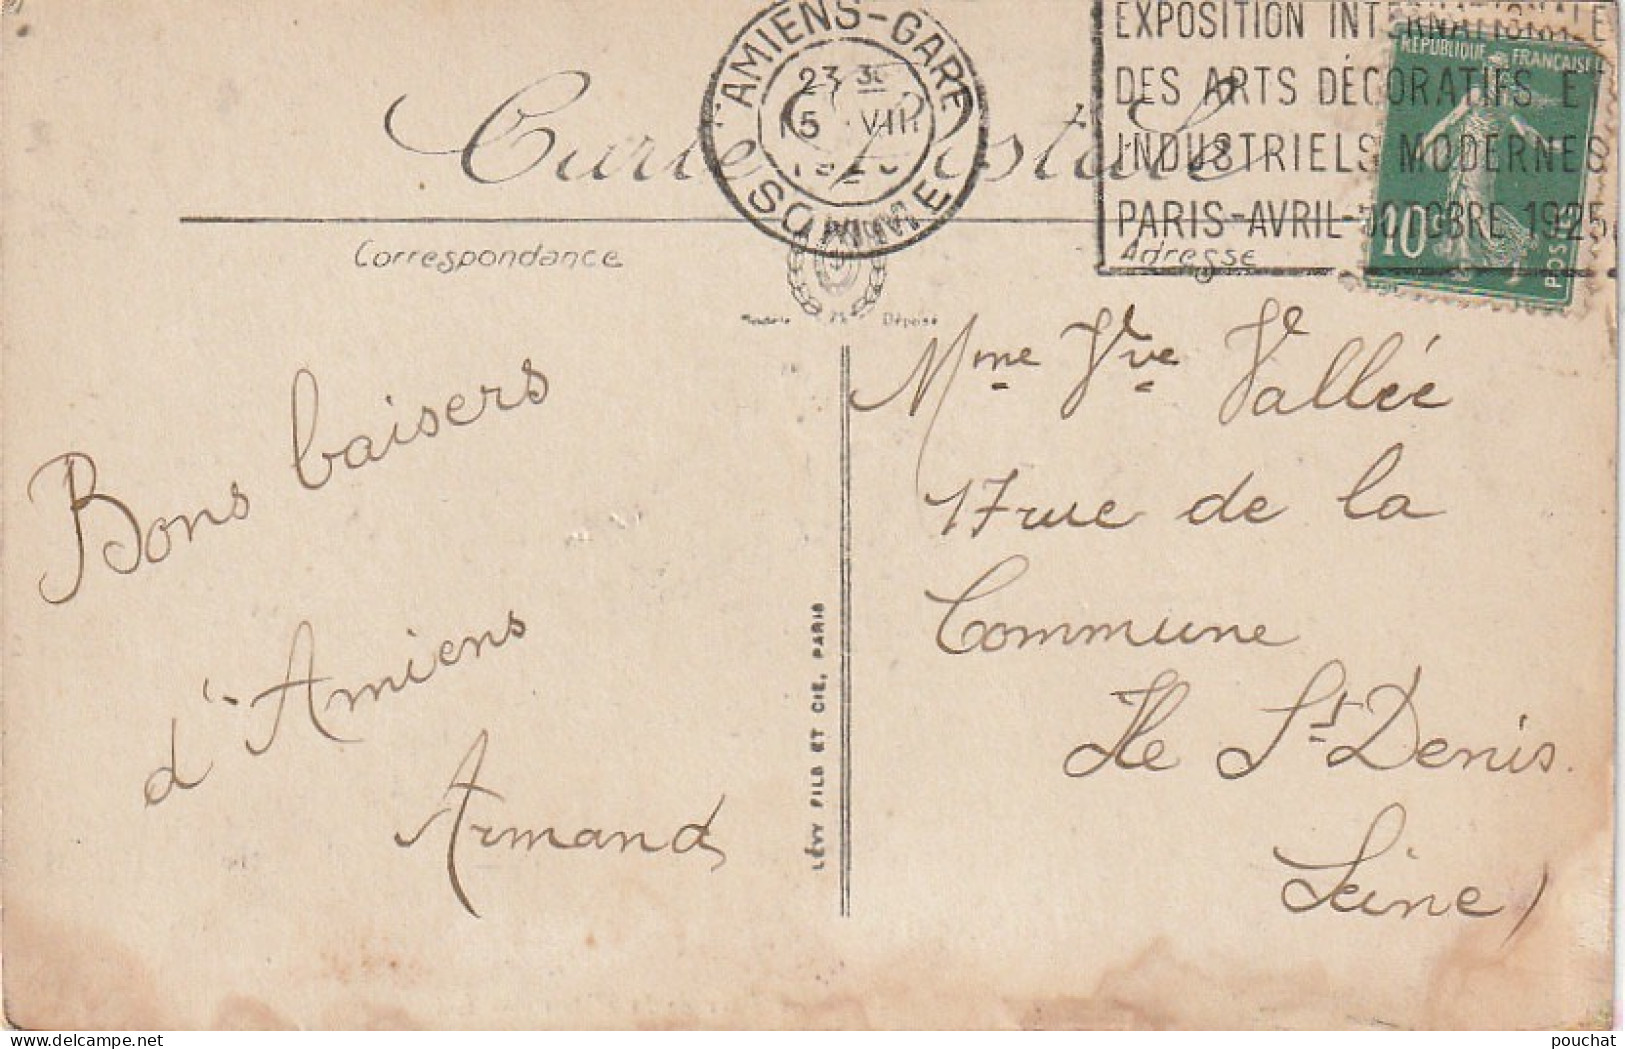 AMIENS-GARE
23 30
15 VIII
SOMME
EXPOSITION INTERNATIONALE
DES ARTS DÉCORATIFS E
INDUSTRIELS MODERNES
PARIS-AVRIL-OCTOBRE 1925
RÉPUBLIQUE FRANÇAISE
10c
POSTES
Carte Postale
Correspondance
Adresse
Modèle Déposé
Bons baisers
d'Amiens
Armand
LÉVY FILS ET CIE, PARIS
Mme Vve Vallée
17 rue de la
Commune
Ile St Denis.
Seine)
delcampe.net
pouchat